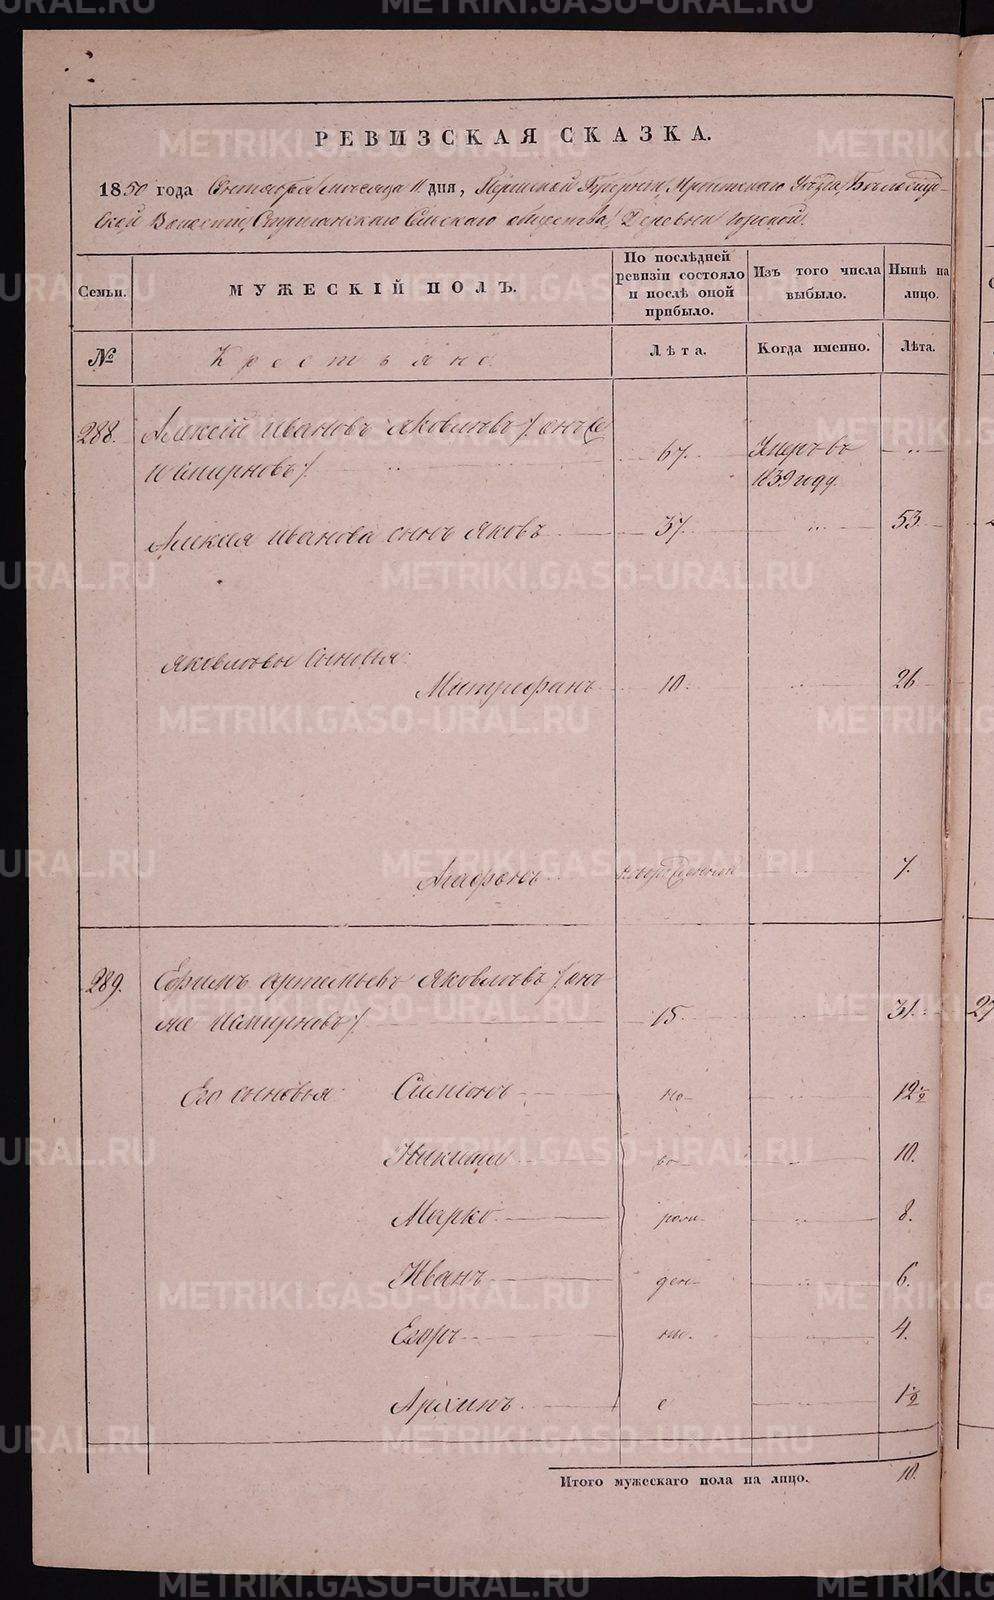 METRIKI.GASO-URAL.RU
РЕВИЗСКАЯ СКАЗКА.
1850 года Сентября месяца 11 дня, Пермской Губернии, Ирбитскаго Уезда, Белослуд-
ской Волости, Стриганскаго Сельскаго общества, Деревни Горской.
Семьи. МУЖЕСКІЙ ПОЛЪ. По послѣдней ревизіи состояло и послѣ оной прибыло. Изъ того числа выбыло. Нынѣ на лицо.
№ Крестьяне. Лѣта. Когда именно. Лѣта.
288. Алексей Ивановъ Яковлевъ /: онъ же
и Смирновъ/ 67. Умеръ въ 1839 году.
Алексея Иванова сынъ Яковъ 37. 53.
Яковлевы сыновья:
Митрофанъ 10. 26
Агафонъ новорожденной 7.
289. Ефимъ Артемьевъ Яковлевъ /: онъ
же Смирновъ/ 15 31.
Его сыновья: Симіонъ но- 12 1/2
Никита во- 10.
Марко рож- 8.
Иванъ ден- 6.
Егоръ ны. 4.
Архипъ е 1 1/2
Итого мужескаго пола на лицо. 10.